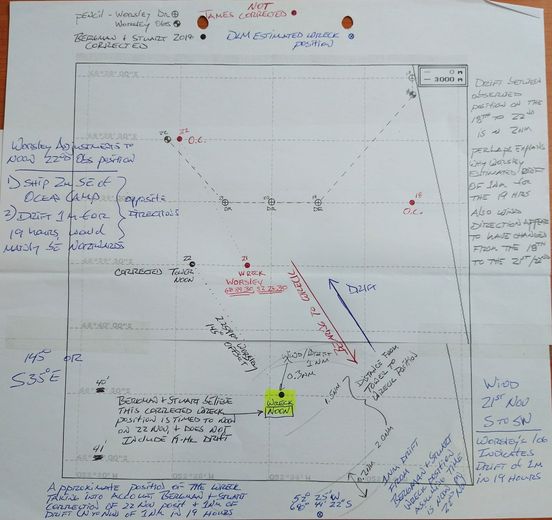 PENCIL - WORSLEY DR ⊕
WORSLEY OBS
BERGMAN & STUART 2018
CORRECTED
NOT
TAMES CORRECTED
DLM ESTIMATED WRECK
POSITION
0 M
3000 M
DRIFT BETWEEN
OBSERVED
POSITION ON THE
18TH TO 22ND
IS N 2NM
PERHAPS EXPLAINS
WHY WORSLEY
ESTIMATED DRIFT
OF 1NM FOR
THE 19 HRS
ALSO WIND
DIRECTION APPEARS
TO HAVE CHANGED
FROM THE 18TH
TO THE 21ST/22ND
WORSLEY ADJUSTMENTS TO
NOON 22ND OBS POSITION
1) SHIP 2M SE OF
OCEAN CAMP
2) DRIFT 1M FOR
19 HOURS, WOULD
MAINLY BE NORTHWARDS
OPPOSITE
DIRECTIONS
22
21
O.C.
DR
DR
19
DR
18
O.C.
22
CORRECTED TOWER
NOON
21
WRECK
WORSLEY
DRIFT
BEARING TO WRECK
145° OFFSET
145° OR
S35°E
40'
41'
WIND/DRIFT
1 NM
0.3NM
WRECK
NOON
BERGMAN & STUART BELIEVE
THIS CORRECTED WRECK
POSITION IS TIMED TO NOON
ON 22 NOV, & DOES NOT
INCLUDE 19-HR DRIFT
DISTANCE FROM
TOWER TO
WRECK POSITION
1.5NM
2.0NM
1NM DRIFT
FROM
BERGMAN & STUART
WRECK POSITION
ASSUMING TIME
IS NOON BY
22ND NOV
WIND
21ST NOV
S TO SW
WORSLEY'S LOG
INDICATES
DRIFT OF 1M
IN 19 HOURS
APPROXIMATE POSITION OF THE WRECK
TAKING INTO ACCOUNT BERGMAN & STUART
CORRECTION OF 22 NOV POSIT & 1NM OF
DRIFT (N TO NW) OF 1NM IN 19 HOURS
52° 25' W
68° 41' 22" S